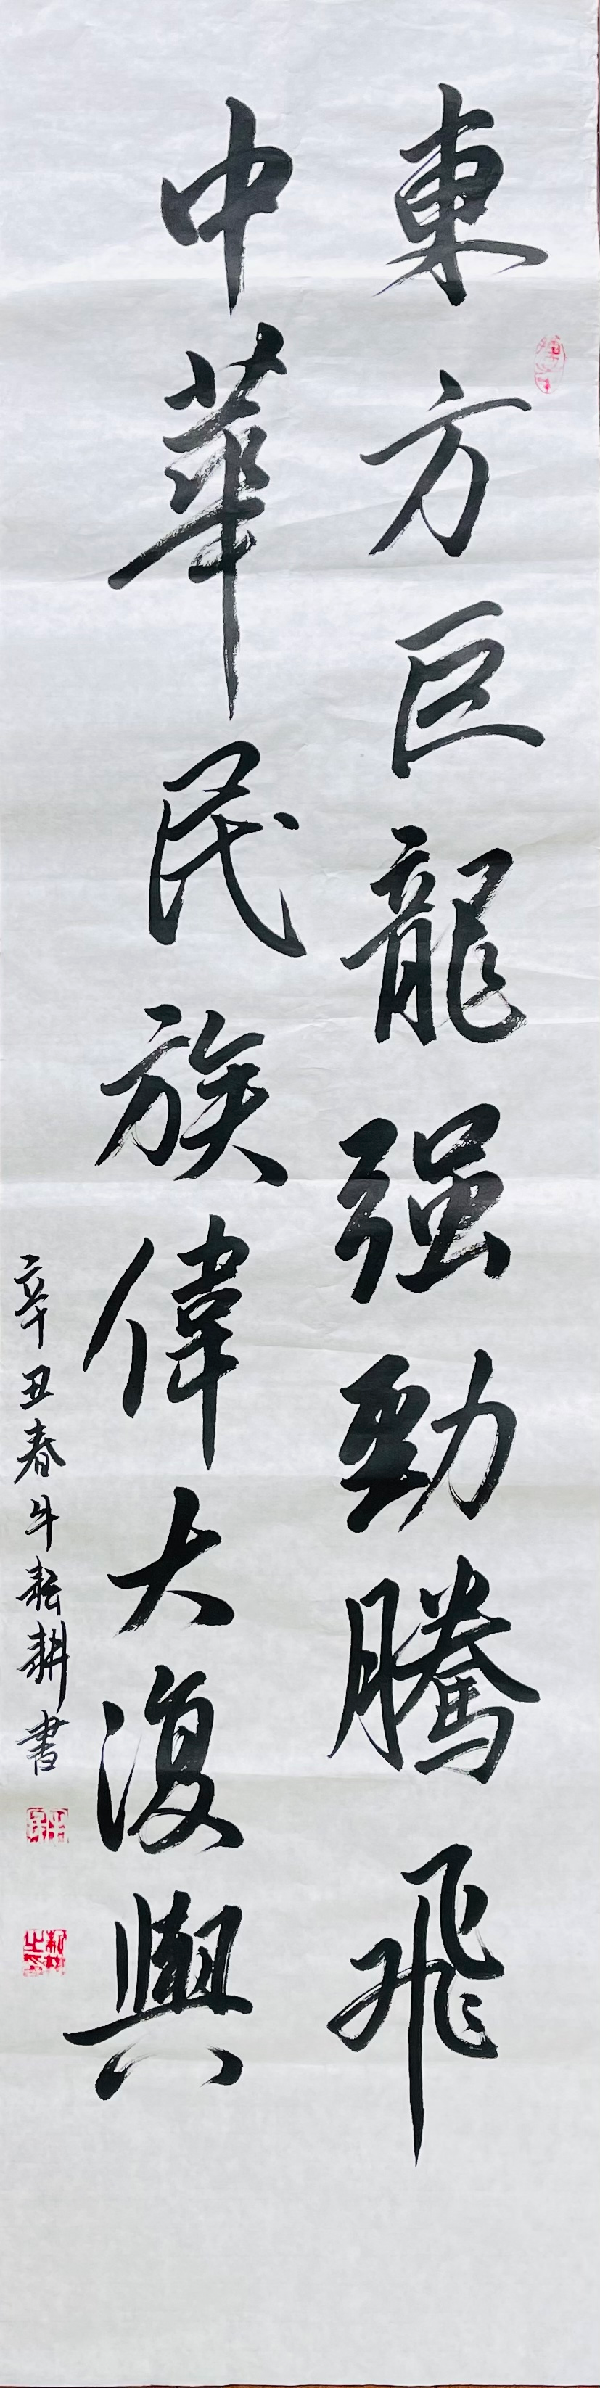 東方巨龍强勁騰飛
中華民族偉大復興
辛丑春牛耘耕書